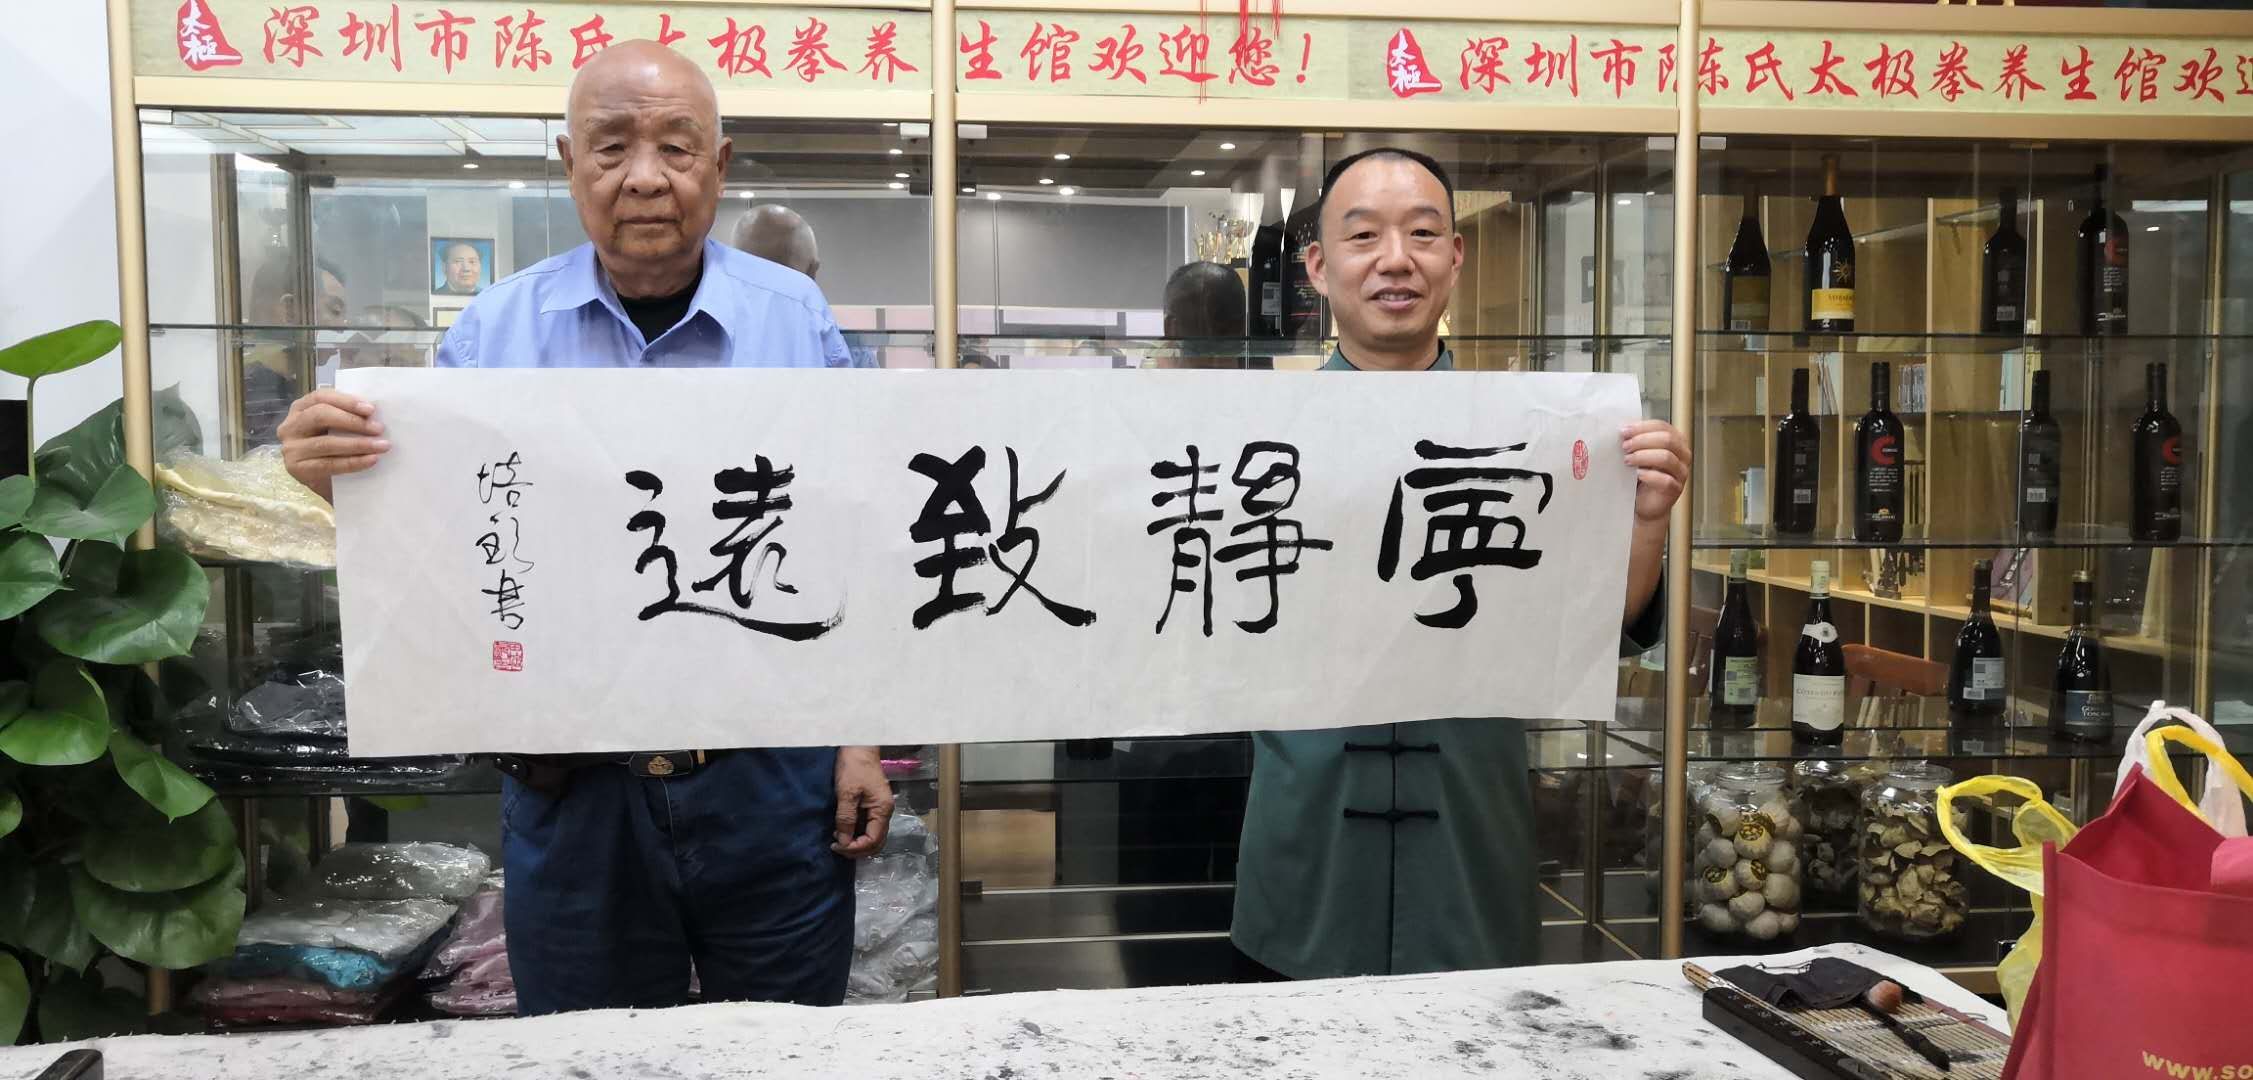 太極 深圳市陈氏太极拳养生馆欢迎您!
太極 深圳市陈氏太极拳养生馆欢迎
寧靜致遠
書
www.so